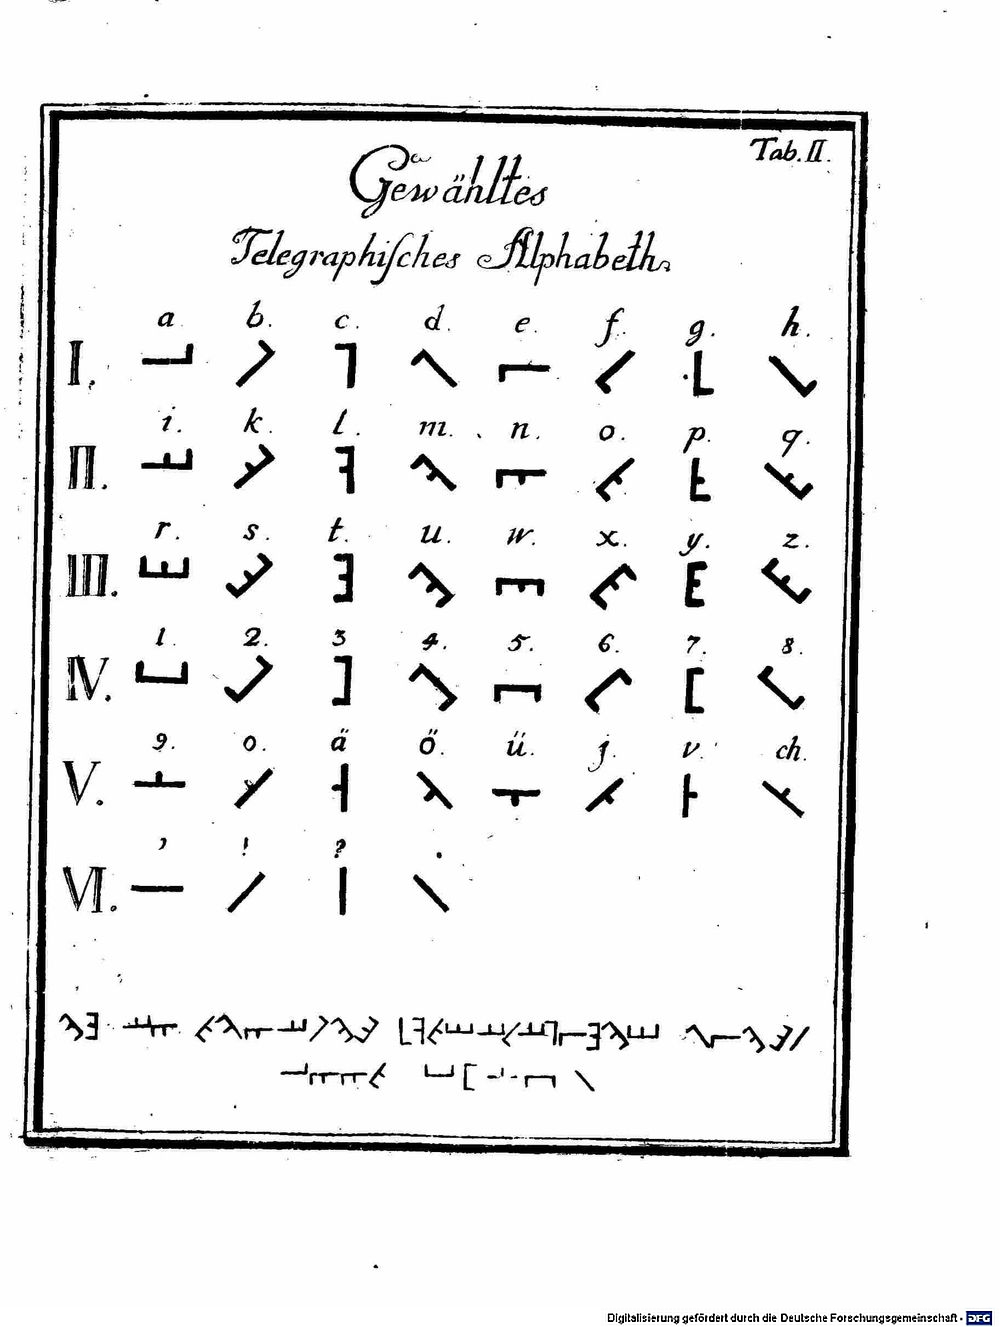 Tab. II.
Gewähltes
Telegraphisches Alphabeth
a b. c. d. e. f. g. h.
I.
i. k. l. m. n. o. p. q.
II.
r. s. t. u. w. x. y. z.
III.
1. 2. 3 4. 5. 6. 7. 8.
IV.
9. 0. ä ö. ü. j. v. ch.
V.
, ! ? .
VI.
Digitalisierung gefördert durch die Deutsche Forschungsgemeinschaft - DFG